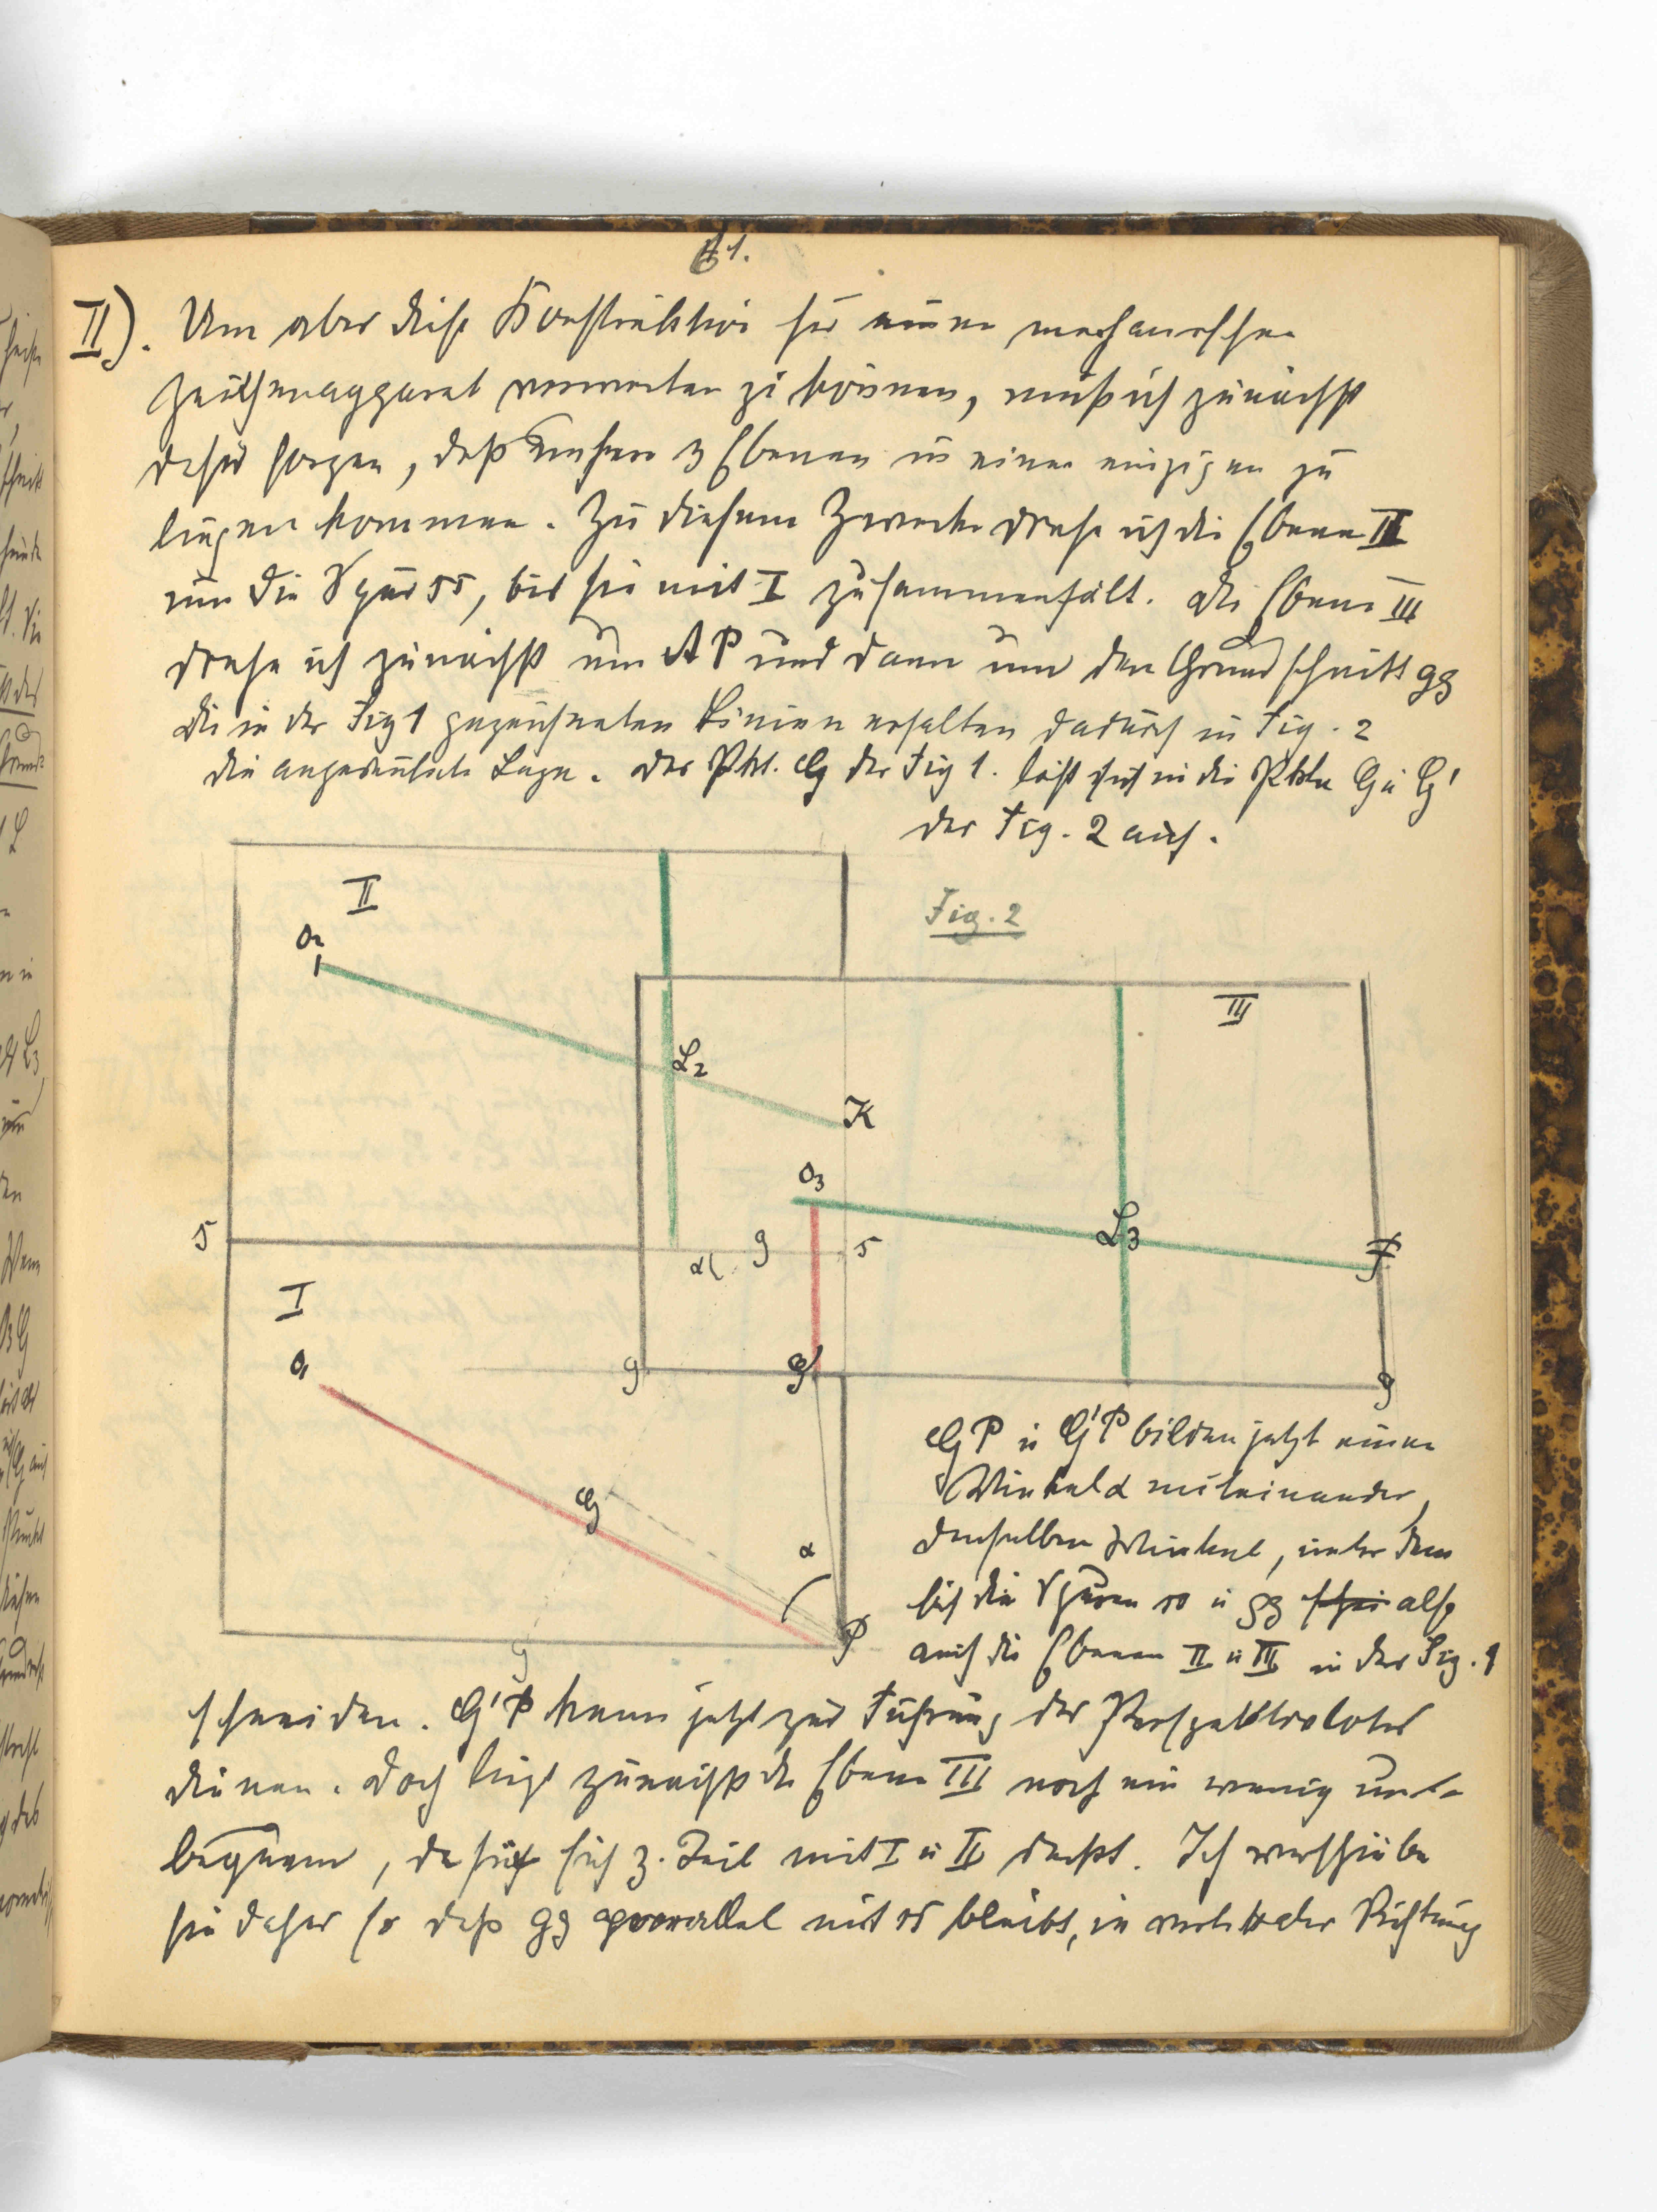 61.
II). Um aber diese Konstruktion für einen mechanischen
Zeichenapparat verwerten zu können, muß ich zunächst
dafür sorgen, daß unsere 3 Ebenen in einer einzigen zu
liegen kommen. Zu diesem Zwecke drehe ich die Ebene II
um die Spur ss, bis sie mit I zusammenfält. Die Ebene III
drehe ich zunächst um AP und dann um den Grundschnitt gg
Die in der Fig 1 gezeichneten Linien erhalten dadurch in Fig. 2
die angedeutete Lage. Der Pkt. G der Fig 1. löst sich in die Pkte G u G'
der Fig. 2 auf.
II
Fig. 2
O2
III
L2
K
O3
L3
F
s
α
g
s
I
O1
g
G'
g
G
α
g
P
GP u G'P bilden jetzt einen
Winkel α miteinander,
denselben Winkel, unter dem
sich die Spuren ss u gg also
auch die Ebenen II u III in der Fig. 1
schneiden. G'P kann jetzt zur Führung des
dienen. Doch liegt zunächst die Ebene III noch ein wenig un-
bequem, da sie sich z. Teil mit I u II deckt. Ich verschiebe
sie daher so daß gg parallel mit ss bleibt, in vertikaler Richtung